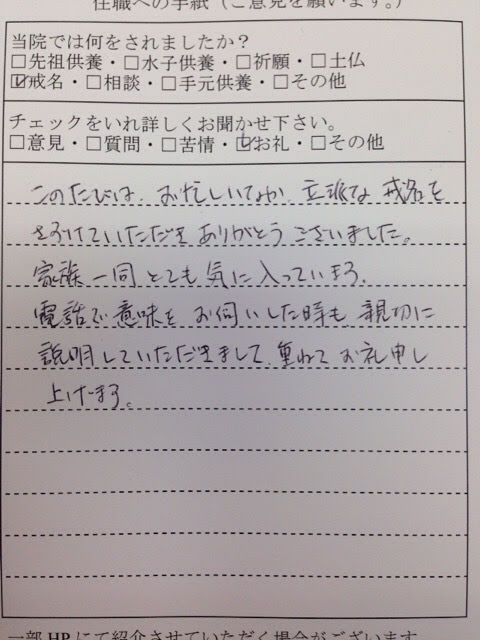 住職への手紙（ご意見を願います。）
当院では何をされましたか？
□先祖供養・□水子供養・□祈願・□土仏
☑戒名・□相談・□手元供養・□その他
チェックをいれ詳しくお聞かせ下さい。
□意見・□質問・□苦情・☑お礼・□その他
このたびは、お忙しいなか、立派な戒名を
さづけていただき ありがとうございました。
家族一同とても気に入っています。
電話で意味をお伺いした時も親切に
説明していただきまして、重ねてお礼申し
上げます。
一部HPにて紹介させていただく場合がございます